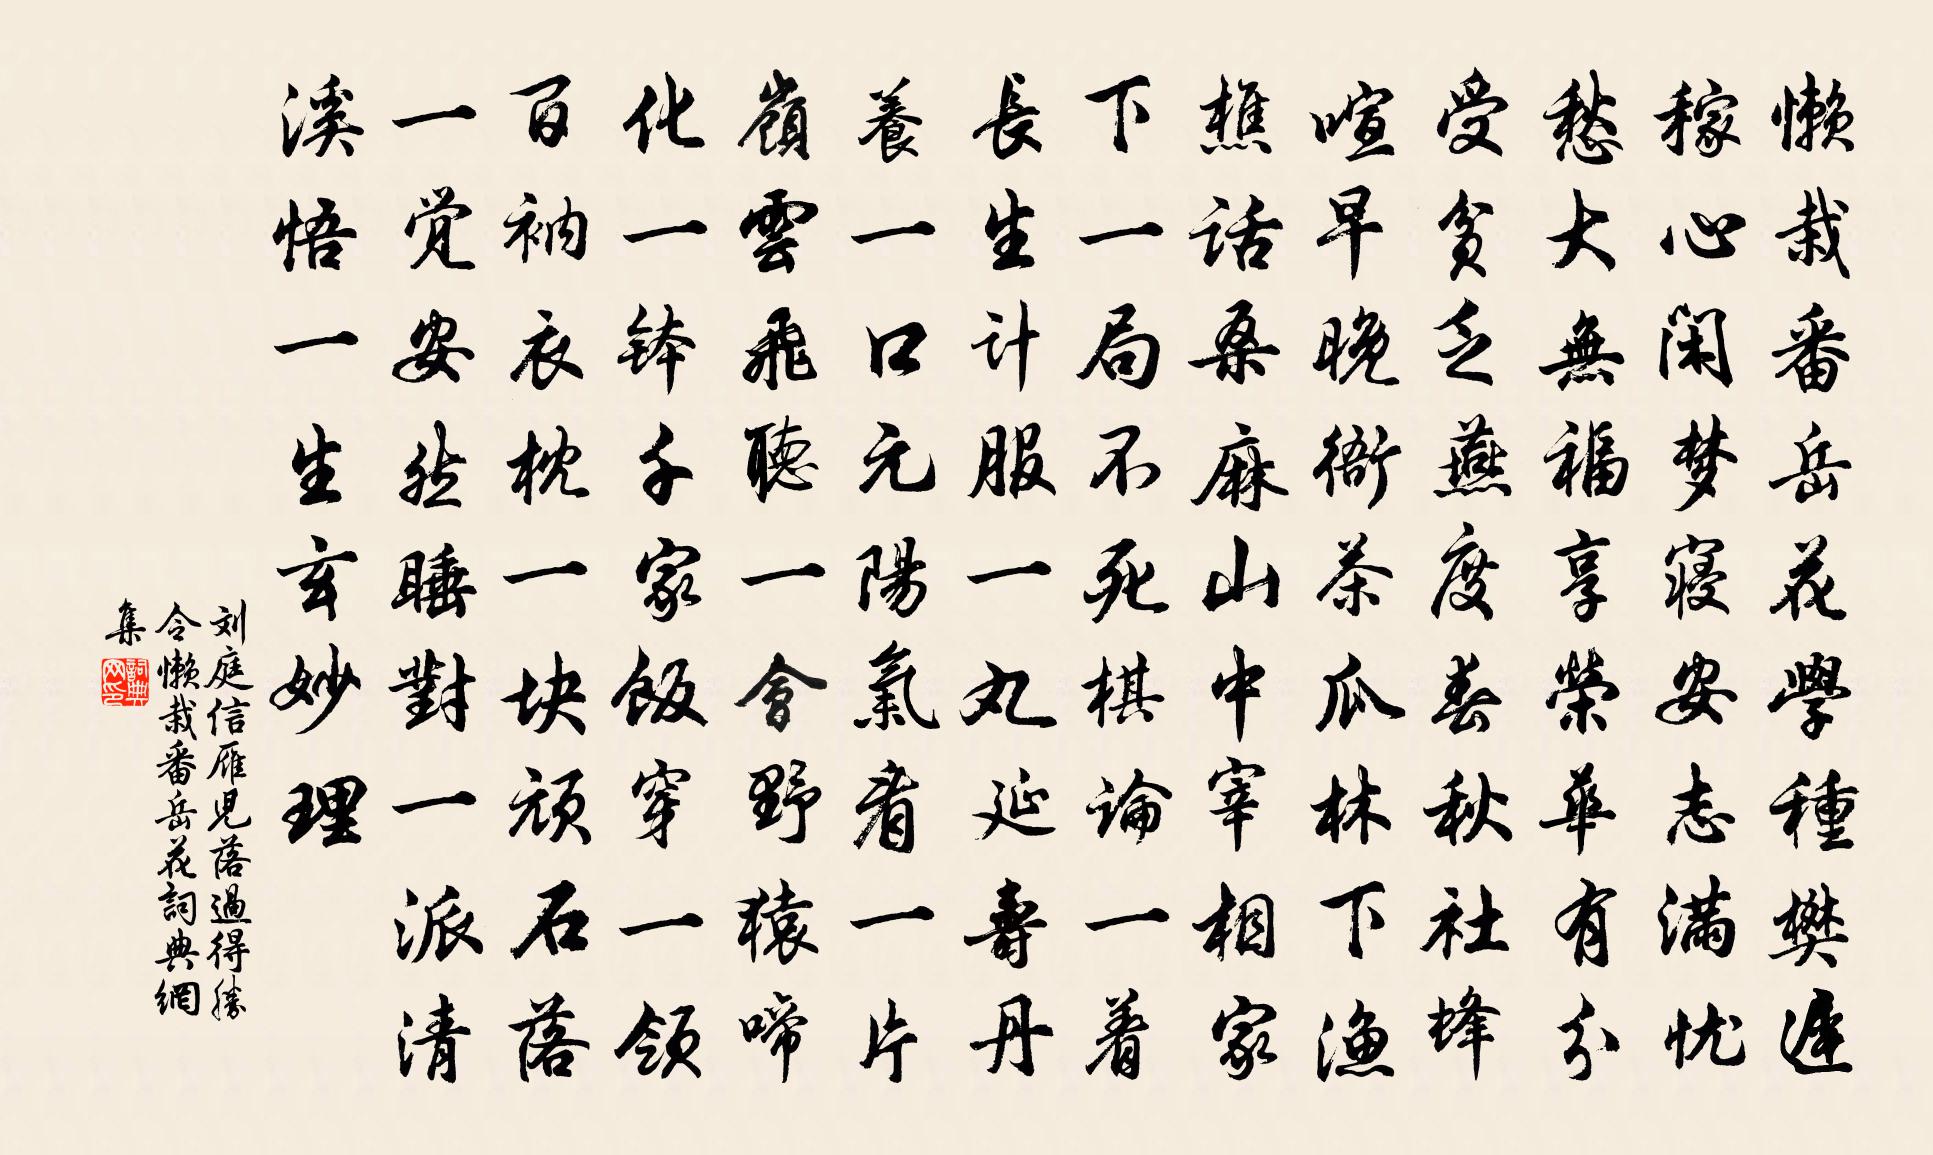 懒栽番岳花學種樊遲
稼心闲梦寝安志满忧
愁大無福享榮華有分
受貧乏燕度春秋社蜂
喧早晚衙茶瓜林下漁
樵话桑麻山中宰相家
下一局不死棋論一着
長生计服一丸延壽丹
養一口元陽氣看一片
嶺雲飛聽一會野猿啼
化一钵千家飯穿一領
百衲衣枕一块顽石落
一觉安然睡對一派清
溪悟一生玄妙理
刘庭信雁児落過得勝
令懒栽番岳花詞典網
集
詞典网印